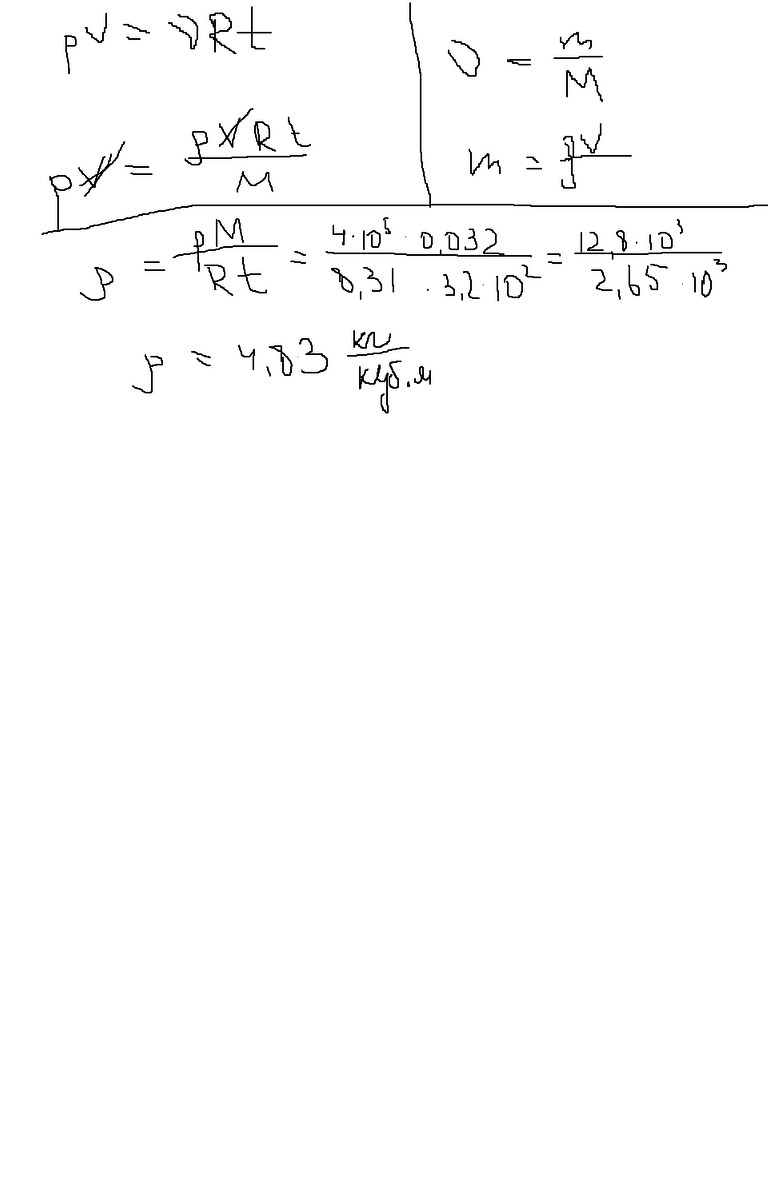 pV = νRt
ν = m/M
pV = ρVRt/M
m = ρV
ρ = pM/Rt = 4·10⁵·0,032/8,31·3,2·10² = 12,8·10³/2,65·10³
ρ = 4,83 кг/куб.м